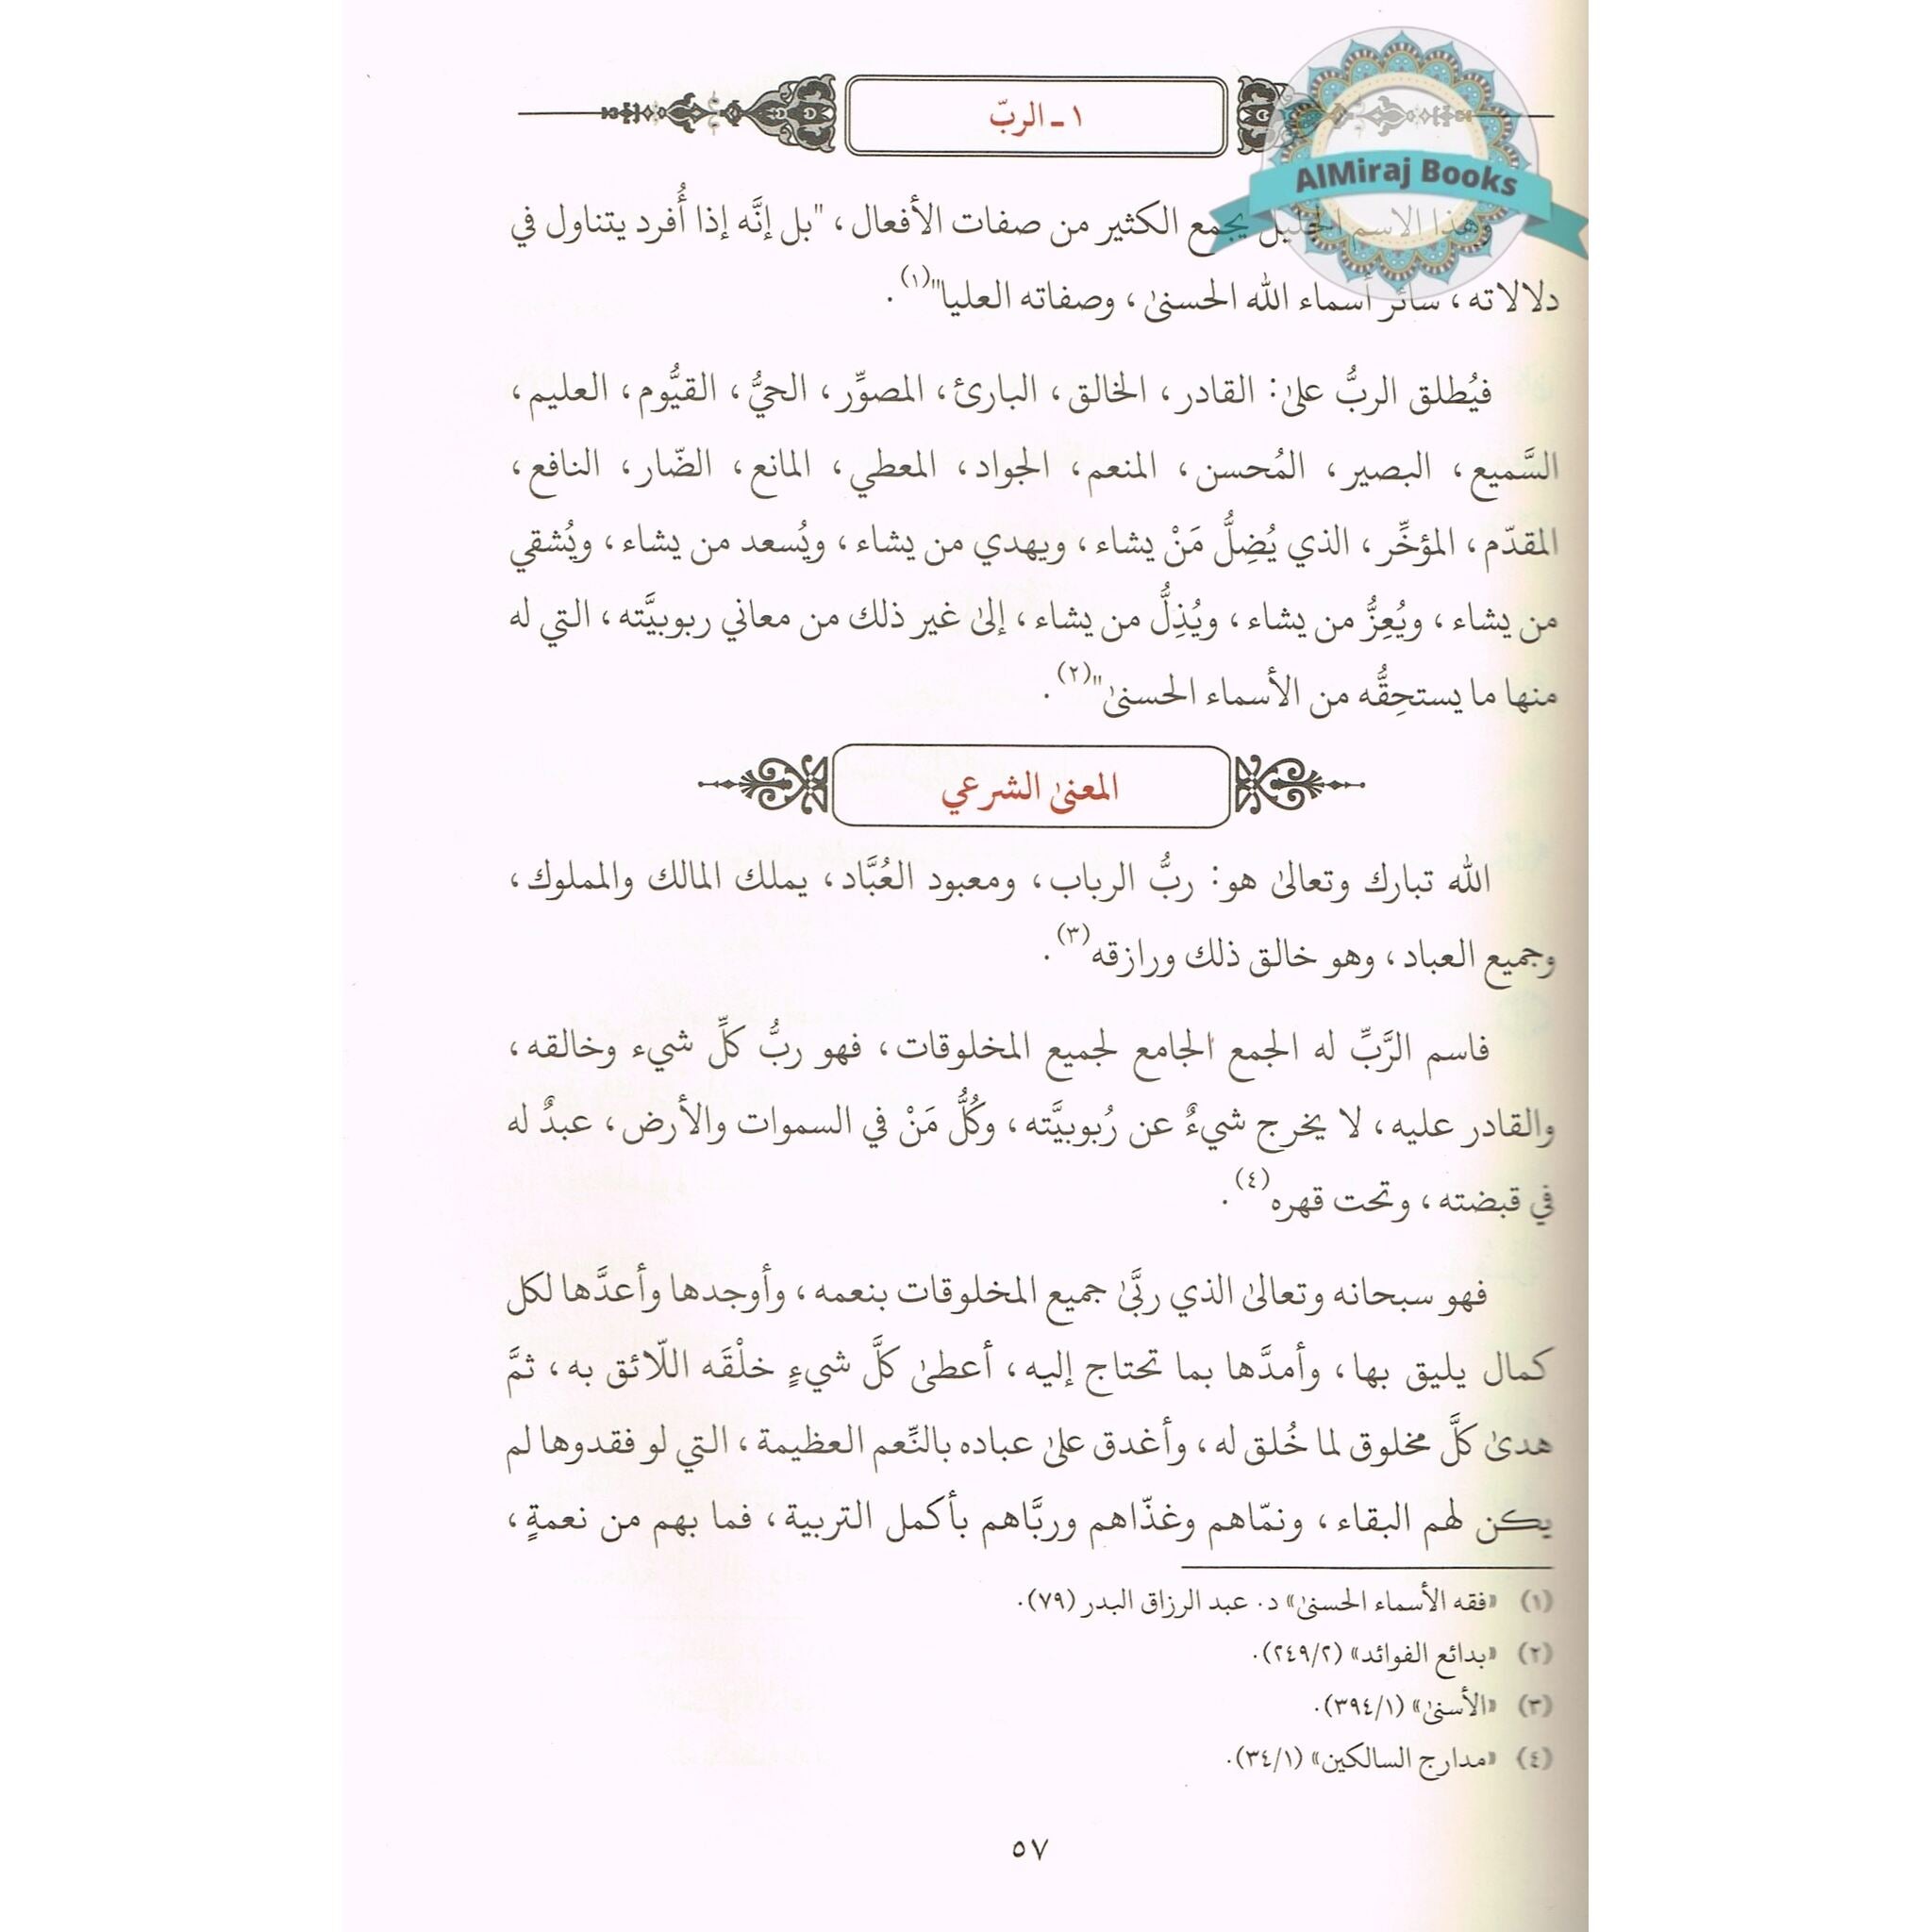 ١ ـ الربّ
AlMiraj Books
وهذا الاسم الجليل يجمع الكثير من صفات الأفعال، "بل إنَّه إذا أُفرد يتناول في
دلالاته، سائر أسماء الله الحسنىٰ، وصفاته العليا"(١).
فيُطلق الربُّ علىٰ: القادر، الخالق، البارئ، المصوِّر، الحيُّ، القيُّوم، العليم،
السَّميع، البصير، المُحسن، المنعم، الجواد، المعطي، المانع، الضّار، النافع،
المقدّم، المؤخِّر، الذي يُضِلُّ مَنْ يشاء، ويهدي من يشاء، ويُسعد من يشاء، ويُشقي
من يشاء، ويُعِزُّ من يشاء، ويُذِلُّ من يشاء، إلىٰ غير ذلك من معاني ربوبيَّته، التي له
منها ما يستحِقُّه من الأسماء الحسنىٰ"(٢).
المعنىٰ الشرعي
الله تبارك وتعالىٰ هو: ربُّ الرباب، ومعبود العُبَّاد، يملك المالك والمملوك،
وجميع العباد، وهو خالق ذلك ورازقه(٣).
فاسم الرَّبِّ له الجمع الجامع لجميع المخلوقات، فهو ربُّ كلِّ شيء وخالقه،
والقادر عليه، لا يخرج شيءٌ عن رُبوبيَّته، وكُلُّ مَنْ في السموات والأرض، عبدٌ له
في قبضته، وتحت قهره(٤).
فهو سبحانه وتعالىٰ الذي ربَّىٰ جميع المخلوقات بنعمه، وأوجدها وأعدَّها لكل
كمال يليق بها، وأمدَّها بما تحتاج إليه، أعطىٰ كلَّ شيءٍ خلْقَه اللّائق به، ثمَّ
هدىٰ كلَّ مخلوق لما خُلق له، وأغدق علىٰ عباده بالنِّعم العظيمة، التي لو فقدوها لم
يكن لهم البقاء، ونمّاهم وغذّاهم وربَّاهم بأكمل التربية، فما بهم من نعمةٍ،
(١) «فقه الأسماء الحسنىٰ» د. عبد الرزاق البدر (٧٩).
(٢) «بدائع الفوائد» (٢٤٩/٢).
(٣) «الأسنىٰ» (٣٩٤/١).
(٤) «مدارج السالكين» (٣٤/١).
٥٧